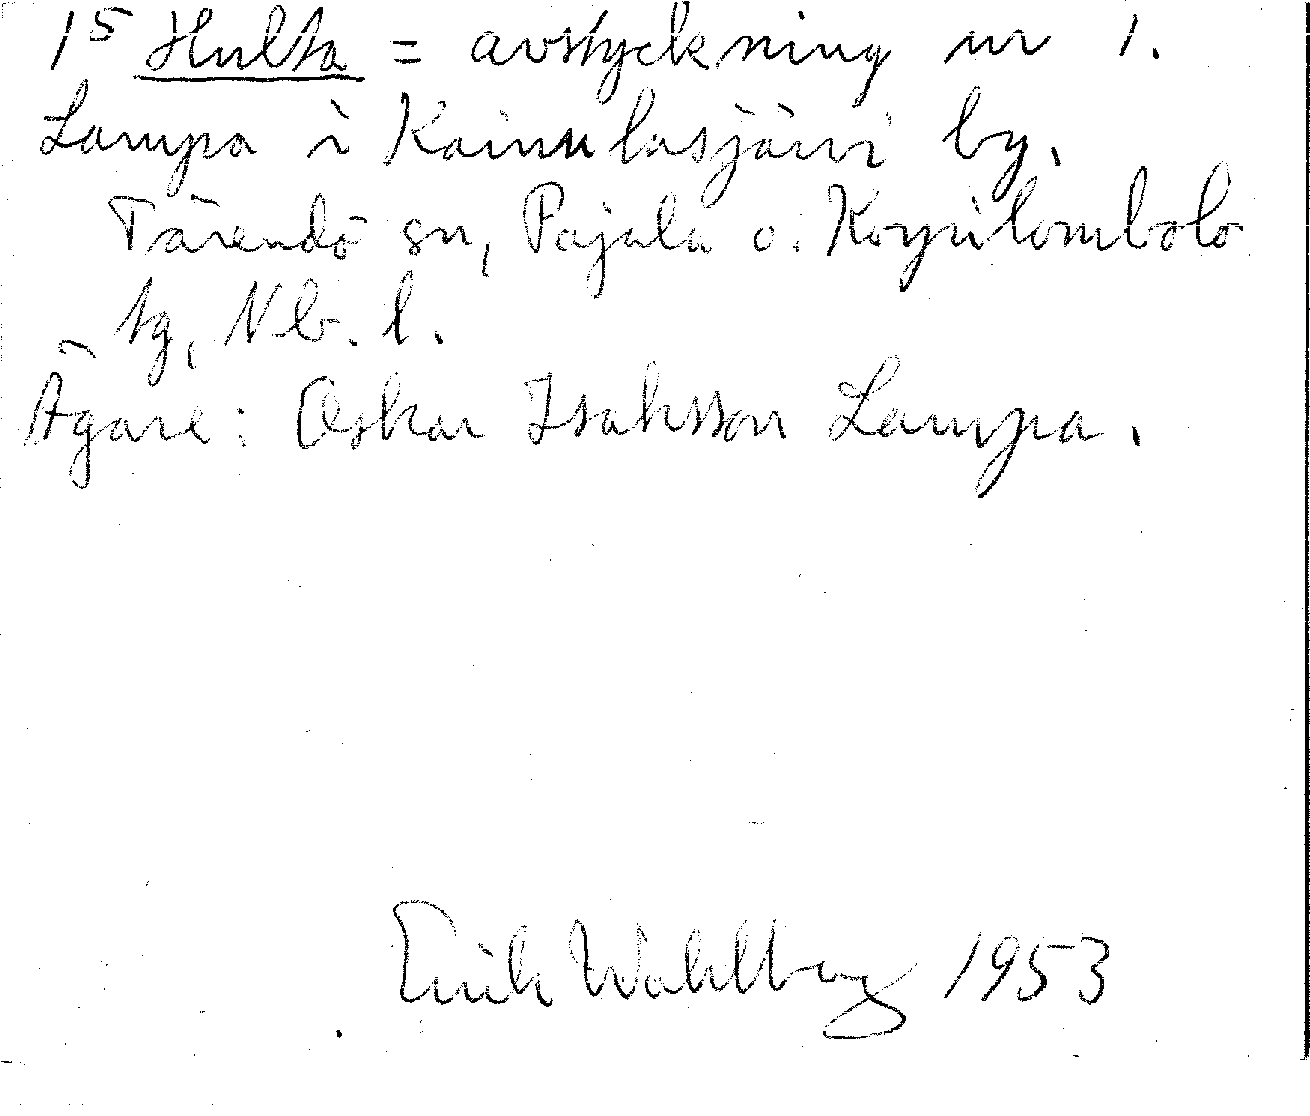 1⁵ Hulta = avstyckning ur 1.
Lampa i Kainulasjärvi by.
Tärendö sn, Pajala o. Korpilombolo
tg, Nb. l.
Ägare: Oskar Isaksson Lampa.
Erik Wahlberg 1953